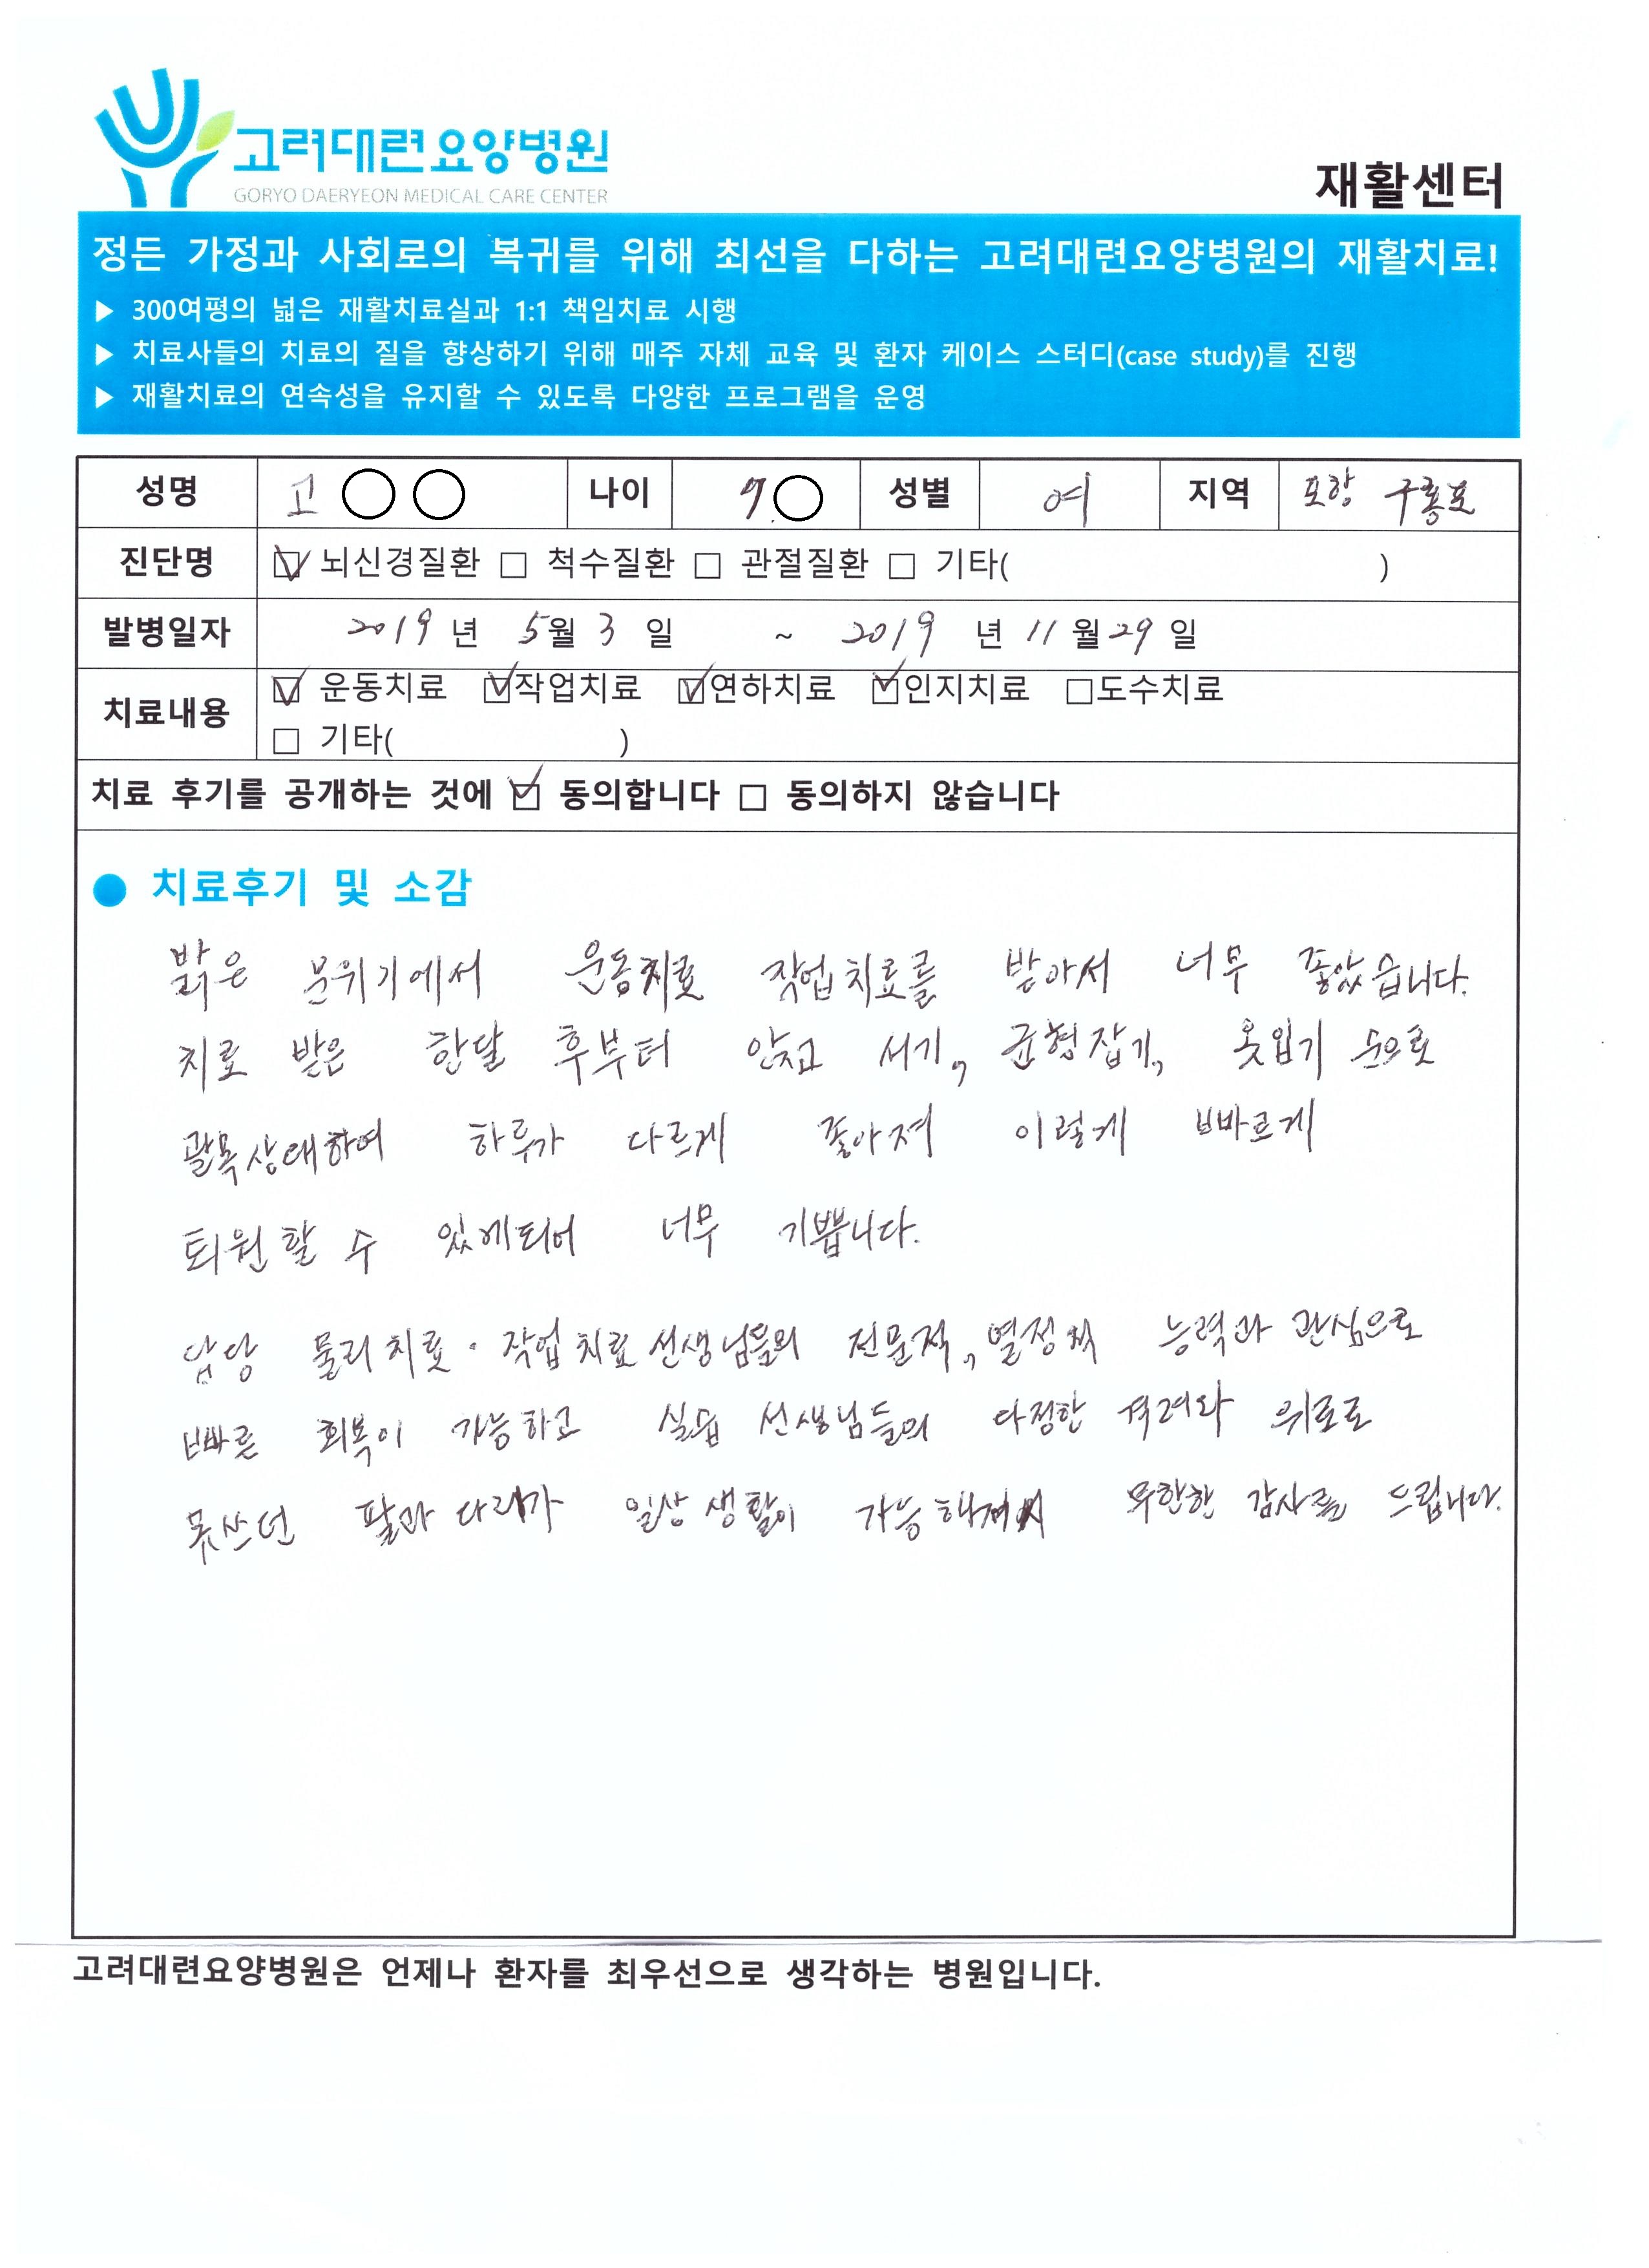 고려대련요양병원
GORYO DAERYEON MEDICAL CARE CENTER
재활센터
정든 가정과 사회로의 복귀를 위해 최선을 다하는 고려대련요양병원의 재활치료!
▶ 300여평의 넓은 재활치료실과 1:1 책임치료 시행
▶ 치료사들의 치료의 질을 향상하기 위해 매주 자체 교육 및 환자 케이스 스터디(case study)를 진행
▶ 재활치료의 연속성을 유지할 수 있도록 다양한 프로그램을 운영
성명 고 ○ ○ 나이 7○ 성별 여 지역 포항 구룡포
진단명 ☑ 뇌신경질환 □ 척수질환 □ 관절질환 □ 기타( )
발병일자 2019 년 5월 3 일 ~ 2019 년 11 월 29 일
치료내용 ☑ 운동치료 ☑작업치료 ☑연하치료 ☑인지치료 □도수치료
□ 기타( )
치료 후기를 공개하는 것에 ☑ 동의합니다 □ 동의하지 않습니다
● 치료후기 및 소감
밝은 분위기에서 운동치료 작업치료를 받아서 너무 좋았습니다.
치료 받은 한달 후부터 앉고 서기, 균형잡기, 옷입기 순으로
괄목상대하여 하루가 다르게 좋아져 이렇게 빠르게
퇴원할 수 있게되어 너무 기쁩니다.
담당 물리치료·작업치료 선생님들의 전문적, 열정적 능력과 관심으로
빠른 회복이 가능하고 실습 선생님들의 다정한 격려와 위로로
못쓰던 팔과 다리가 일상생활이 가능해져서 무한한 감사를 드립니다.
고려대련요양병원은 언제나 환자를 최우선으로 생각하는 병원입니다.